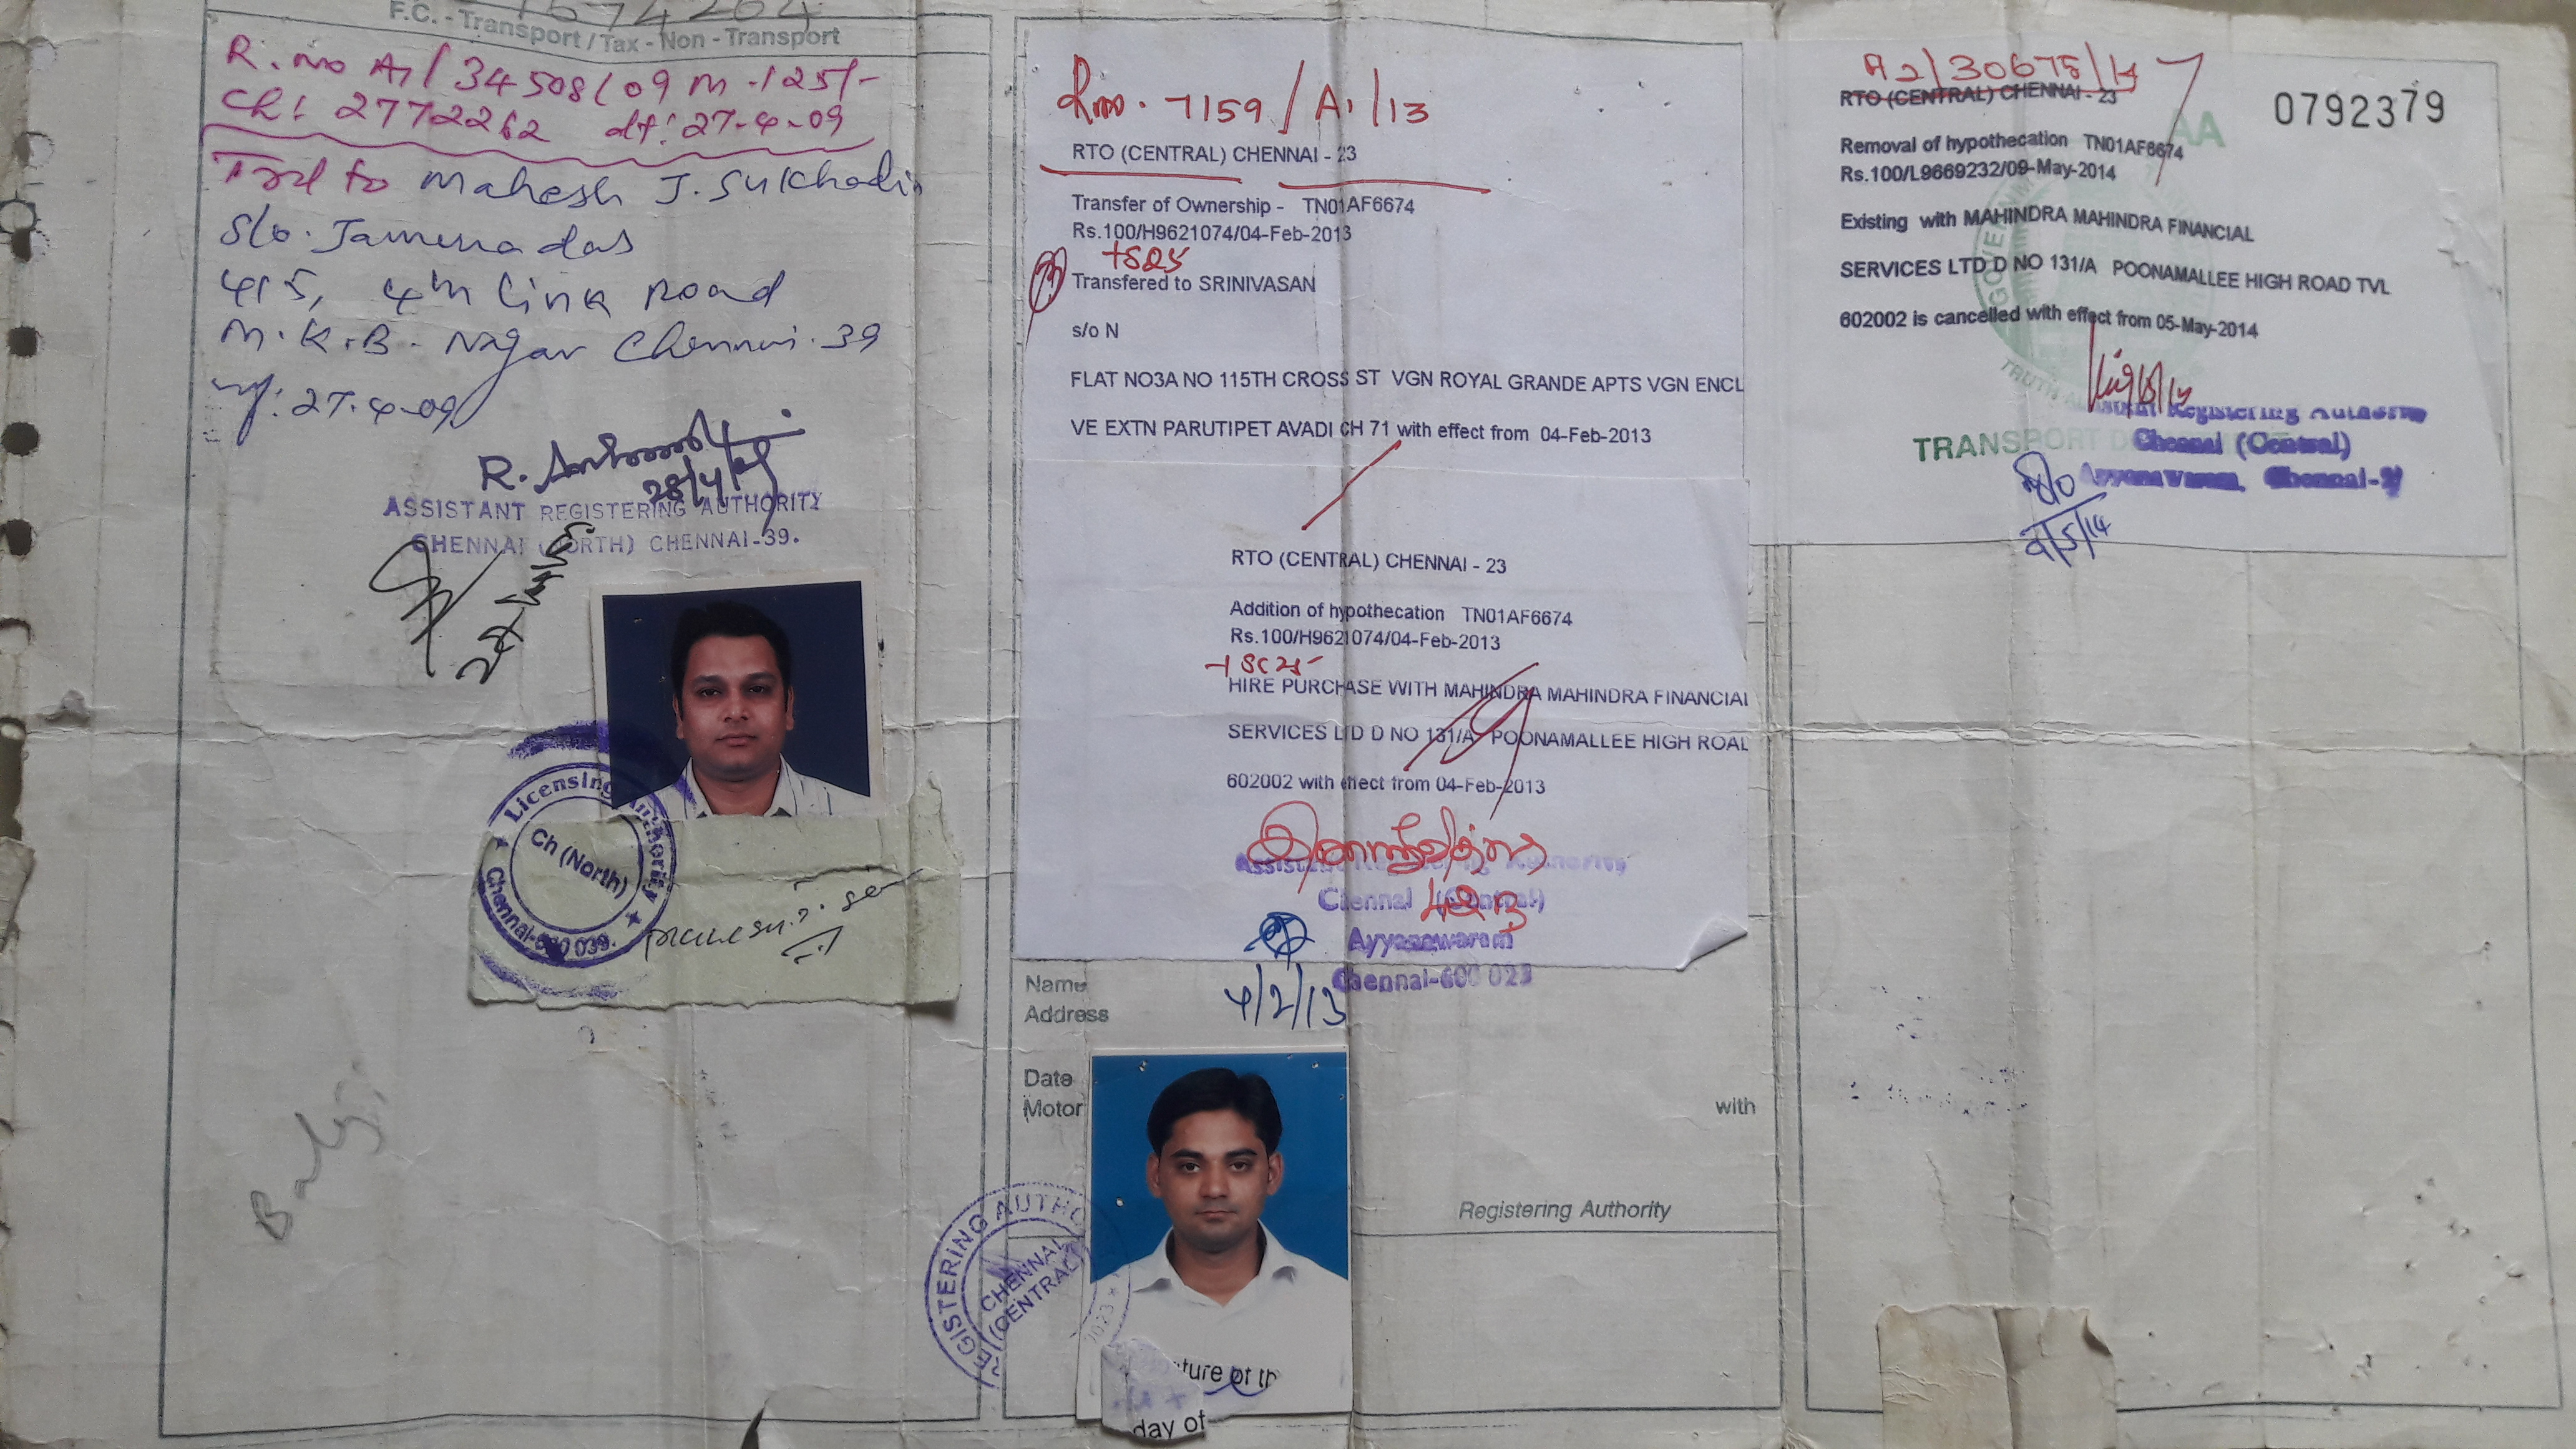 F.C. - Transport / Tax - Non - Transport
R. no A1/34508/09 m. 125/-
Ch: 2772262 dt: 27-4-09
Tosd to mahesh J. Sukhadia
S/o. Jamunadas
45, 4th Link Road
M.K.B. Nagar Chennai. 39
27.4.09
28/4/09
ASSISTANT REGISTERING AUTHORITY
CHENNAI (NORTH) CHENNAI-39.
Licensing Authority
Ch (North)
Chennai-600 039.
REGISTERING AUTHO
CHENNAI
(CENTRAL)
7159 / A1 / 13
RTO (CENTRAL) CHENNAI - 23
Transfer of Ownership - TN01AF6674
Rs.100/H9621074/04-Feb-2013
+525
Transfered to SRINIVASAN
s/o N
FLAT NO3A NO 115TH CROSS ST VGN ROYAL GRANDE APTS VGN ENCL
VE EXTN PARUTIPET AVADI CH 71 with effect from 04-Feb-2013
RTO (CENTRAL) CHENNAI - 23
Addition of hypothecation TN01AF6674
Rs.100/H9621074/04-Feb-2013
HIRE PURCHASE WITH MAHINDRA MAHINDRA FINANCIAL
SERVICES LTD D NO 131/A POONAMALLEE HIGH ROAD
602002 with effect from 04-Feb-2013
Chennai (Central)
Ayyanavaram
Chennai-600 023
4/2/13
Name
Address
Date
Motor
with
day of
Registering Authority
A2/30675/14
0792379
AA
RTO (CENTRAL) CHENNAI - 23
Removal of hypothecation TN01AF6674
Rs.100/L9669232/09-May-2014
Existing with MAHINDRA MAHINDRA FINANCIAL
SERVICES LTD D NO 131/A POONAMALLEE HIGH ROAD TVL
602002 is cancelled with effect from 05-May-2014
TRANSPORT
Registering Authority
Chennai (Central)
Ayyanavaram, Chennai-
9/5/14